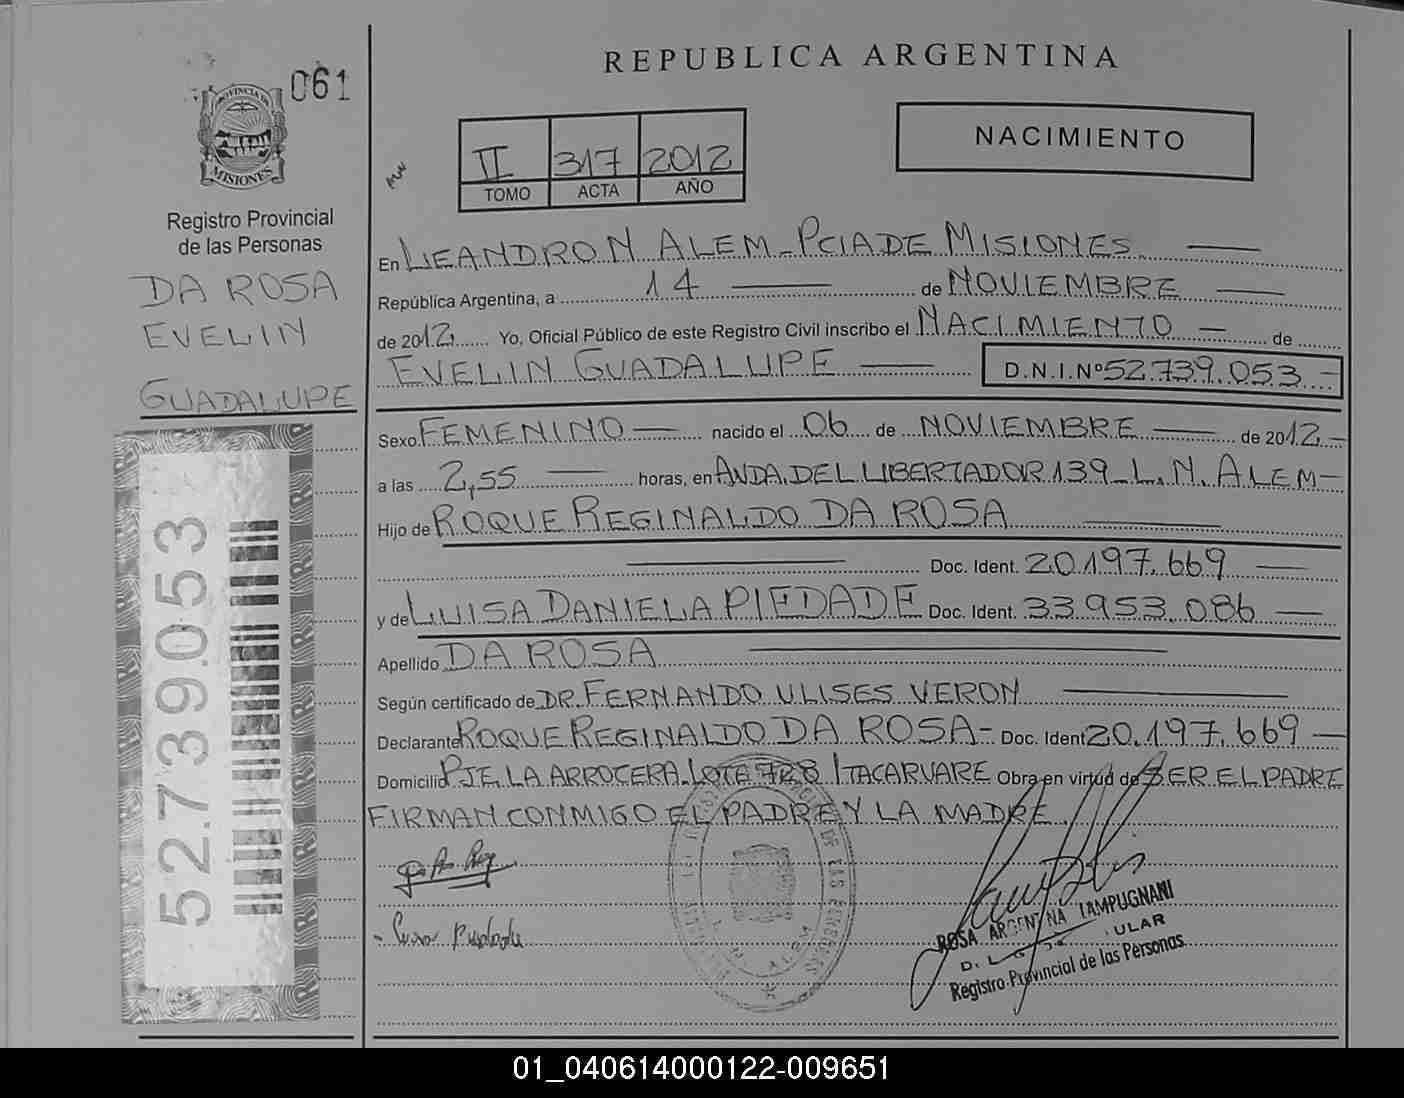 REPUBLICA ARGENTINA
061
PROVINCIA DE
MISIONES
Registro Provincial
de las Personas
DA ROSA
EVELIN
GUADALUPE
52.739.053
II 317 2012
TOMO ACTA AÑO
NACIMIENTO
En LEANDRO N ALEM - PCIA DE MISIONES
República Argentina, a 14 de NOVIEMBRE
de 2012 Yo, Oficial Público de este Registro Civil inscribo el NACIMIENTO de
EVELIN GUADALUPE D.N.I.Nº 52.739.053
Sexo FEMENINO nacido el 06 de NOVIEMBRE de 2012
a las 2,55 horas, en AVDA. DEL LIBERTADOR 139 - L. N. ALEM
Hijo de ROQUE REGINALDO DA ROSA
Doc. Ident. 20.197.669
y de LUISA DANIELA PIEDADE Doc. Ident. 33.953.086
Apellido DA ROSA
Según certificado de DR. FERNANDO ULISES VERON
Declarante ROQUE REGINALDO DA ROSA - Doc. Ident 20.197.669
Domicilio PJE. LA ARROCERA LOTE 728 ITACARUARE Obra en virtud de SER EL PADRE
FIRMAN CONMIGO EL PADRE Y LA MADRE
ROSA ARGENTINA LAMPUGNANI
Registro Provincial de las Personas
01_040614000122-009651